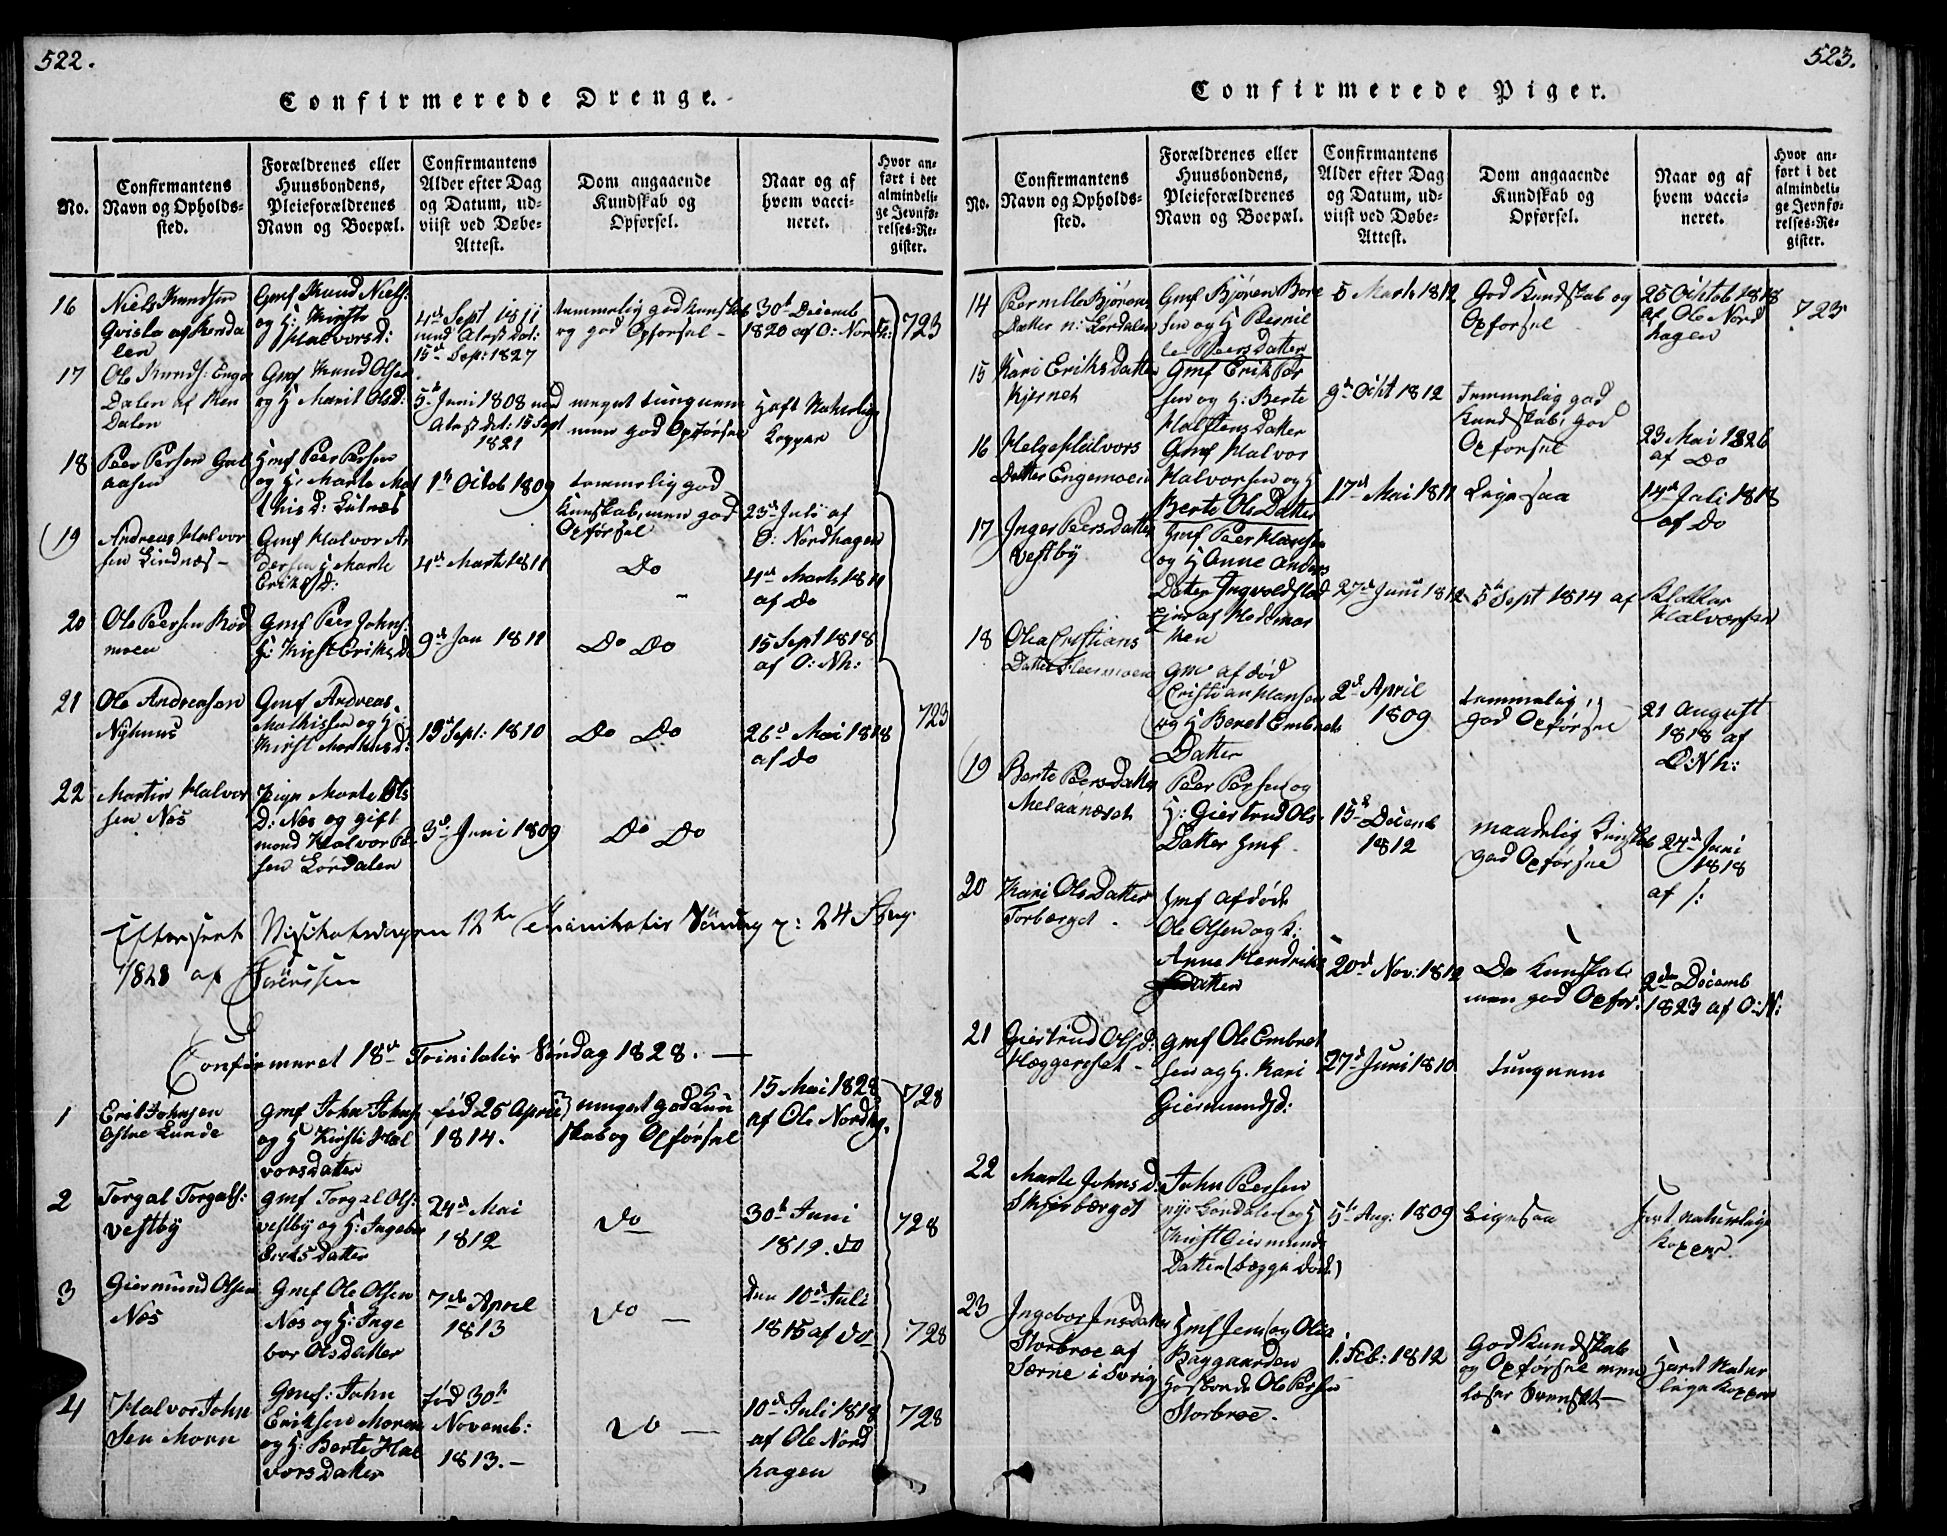 522.
Confirmerede Drenge.
No.
Confirmantens
Navn og Opholds-
sted.
Forældrenes eller
Huusbondens,
Pleieforældrenes
Navn og Boepæl.
Confirmantens
Alder efter Dag
og Datum, ud-
viist ved Døbe-
Attest.
Dom angaaende
Kundskab og
Opførsel.
Naar og af
hvem vacci-
neret.
Hvor an-
ført i det
almindeli-
ge Jevnfø-
relses-Re-
gister.
16
Niels Knudsen
Gmf Knud Niels:
og H: Kirsti
Halvorsd:
4de Sept 1811
15de Sep: 1827
temmelig god Kunskab
og god Opførsel -
30te Decemb
1820 af O: Nordh:
723
17
Ole Knuds:
Dalen
Gmf Knud Olsen
og H Marit Olsd:
5te Juni 1808
Atest det: 15 Sept
1821
meget tungnem
men god Opførsel
Haft Naturlig
Kopper
18
Peer Persen Graa
aasen
Gmf Peer Persen
og H: Marte Mat
this d: Lutnæs
1te Octob 1809
temmelig god
Kunskab, men god
Opførsel
23de Juli af
O: Nordhagen
19
Andreas Halvor
sen Lindnæs -
Gmf Halvor An
dersen H Marte
Eriksd:
4de Marts 1811
Do
4de Marts 1811
af Do
20
Ole Peersen Rød
moen
Gmf Peer Johns:
H: Kirst Eriks D
9de Jan 1811
Do Do
15 Sept 1818
af O: Nh:
21
Ole Andreasen
Nyhuus
Gmf Andreas
Mathissen og H
Kirst Marthisd:
19de Sept: 1810
Do Do
26de Mai 1818
af do
723
22
Martin Halvor
sen Næs
Pigen Marte Ols
D: Næs og gift
mand Halvor Pe
sen Lørdalen
3de Juni 1809
Do Do
Efterseet Visitatsdagen 12te Trinitatis Søndag : 24 Aug.
1828 af Sörenssen
Confirmeret 18de Trinitatis Søndag 1828. —
1
Erik Johnsen
Østre Lunde
Gmf John Johns
og H Kirsti Hal
vorsdatter
fød 25 April
1814.
meget god Kun
skab og Opførsel
15 Mai 1828
af Ole Nordhg.
728
2
Torgal Torgals:
Vestby
Gmf Torgal Ols:
Vestby og H: Ingebor
Eriksdatter
24de Mai
1812
do
30te Juni
1819. do
728
3
Giermund Olsen
Næs
Gmf Ole Olsen
Næs og H: Inge
bor Olsdatter
7de April
1813
do —
den 10de Juli
1815 af do
728
4
Halvor John
sen Moren
Gmf: John
Eriksen Moren
og H: Berte Hal
vorsdatter
fød 30te
Novemb:
1813. -
do —
10de Juli 1818
af Ole Nord
hagen
728
523.
Confirmerede Piger.
No.
Confirmantens
Navn og Opholds-
sted.
Forældrenes eller
Huusbondens,
Pleieforældrenes
Navn og Boepæl.
Confirmantens
Alder efter Dag
og Datum, ud-
viist ved Døbe-
Attest.
Dom angaaende
Kundskab og
Opførsel.
Naar og af
hvem vacci-
neret.
Hvor an-
ført i det
almindeli-
ge Jevnfø-
relses-Re-
gister.
14
Pernille Bjørens
Datter n: Lørdalen
Gmf Bjøren Bore
sen og H Pernil
le Peersdatter
5 Marts 1812
God Kundskab og
Opførsel
25 Oktob 1818
af Ole Nord
hagen
723
15
Kari Eriksdatter
Kjernet
Gmf Erik Per
sen og H: Berte
Halstensdatter
9de Oct 1812
Temmelig god
Kundskab, god
Opførsel
23 Mai 1826
af Do
16
Helge Halvors
Datter Engemoen
Gmf Halvor
Halvorsen og H
Berte OlsDatter
17de Mai 1811
Ligesaa
14de Juli 1818
af Do
17
Inger Peersdatter
Vestby
Gmf Peer Hansen
og H Anne Anders
Datter Ingvoldstad
Eier af Hedemar
ken
27de Juni 1812
5te Sept 1814 af
Klokker
Halvorsen
18
Olea Cristians
Datter Flermoen
Gm af død
Cristian Hansen
og H Beret Embrets
Datter
2de April
1809
temmelig,
god Opførsel
21 August
1818 af
O: Nh:
19
Berte Peersdatter
Melaanæset
Peer Persen og
H: Giertrud Ols
Datter Gmf
15de Decemb
1812
maadelig Kunskab
god Opførsel
24de Juni
1818
af /:
20
Kari Olsdatter
Torberget
Gmf afdøde
Ole Olsen og k:
Anne Hendriks
datter
20de Nov: 1812
Do Kunskab
men god Opfør:
2den Decemb
1823 af O: N:
21
Giertrud Olsd:
Heggerset -
Gmf Ole Embret
sen og H. Kari
Giermundsd:
27de Juni 1810
tungnem
22
Marte Johnsd.
Skjærberget
John Peersen
nye Lørdalen og H
Kirst Giermunds
Datter (begge døde)
5te Aug: 1809
Ligesaa
havt Naturlige
Kopper.
23
Ingebor Jensdatter
Storbroe af
Særne i Sverig
Gmf Jens og Olia
Baggaarden
Huusbonde Ole Persen
Storbroe.
1. Feb: 1812
God Kundskab
og Opførsel men
læser Svensk -
Havt Natur
lige Kopper